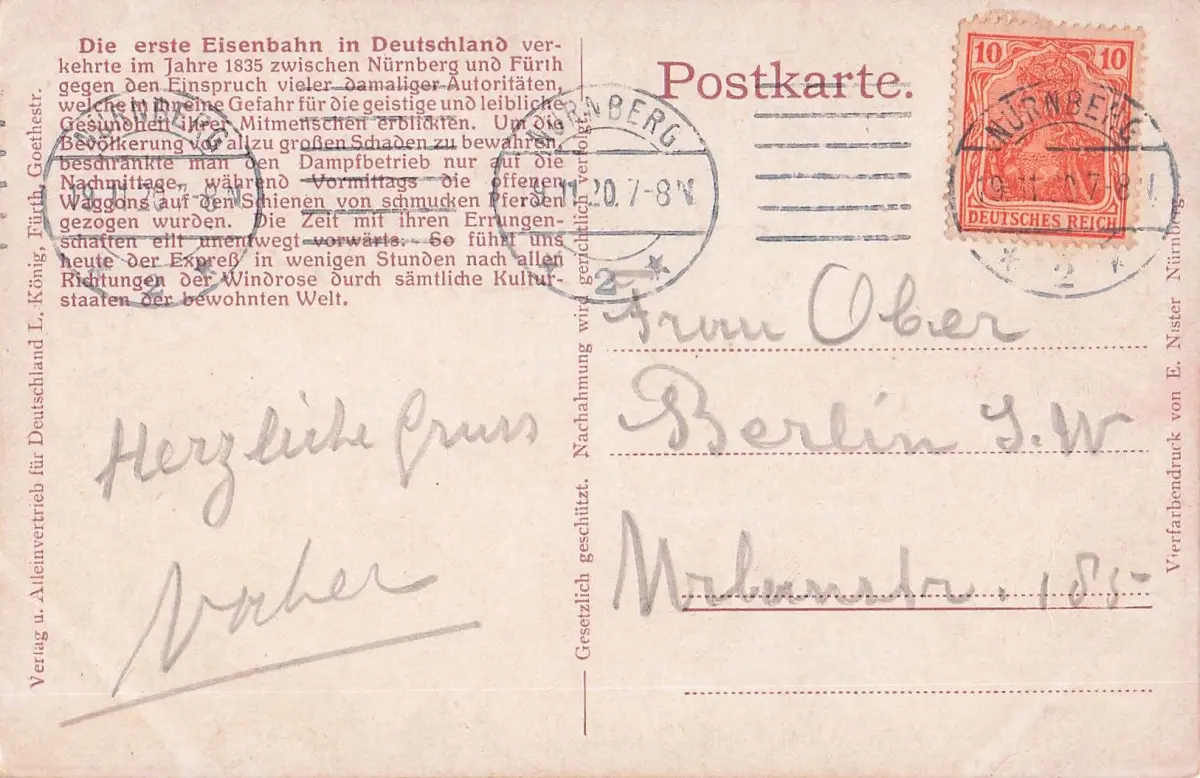 Die erste Eisenbahn in Deutschland ver-
kehrte im Jahre 1835 zwischen Nürnberg und Fürth
gegen den Einspruch vieler damaliger Autoritäten,
welche in ihr eine Gefahr für die geistige und leibliche
Gesundheit ihrer Mitmenschen erblickten. Um die
Bevölkerung vor allzu großen Schaden zu bewahren,
beschränkte man den Dampfbetrieb nur auf die
Nachmittage, während Vormittags die offenen
Waggons auf den Schienen von schmucken Pferden
gezogen wurden. Die Zeit mit ihren Errungen-
schaften eilt unentwegt vorwärts: So führt uns
heute der Expreß in wenigen Stunden nach allen
Richtungen der Windrose durch sämtliche Kultur-
staaten der bewohnten Welt.
Postkarte.
10 10
DEUTSCHES REICH
NÜRNBERG
19.11.20.7-8N
2
NÜRNBERG
19.11.20.7-8N
2
NÜRNBERG
19.11.20.7-8N
2
Frau Ober
Berlin S.W
Urbanstr. 185
Herzliche Gruss
Verlag u. Alleinvertrieb für Deutschland L. König, Fürth, Goethestr.
Gesetzlich geschützt. Nachahmung wird gerichtlich verfolgt.
Vierfarbendruck von E. Nister Nürnberg.